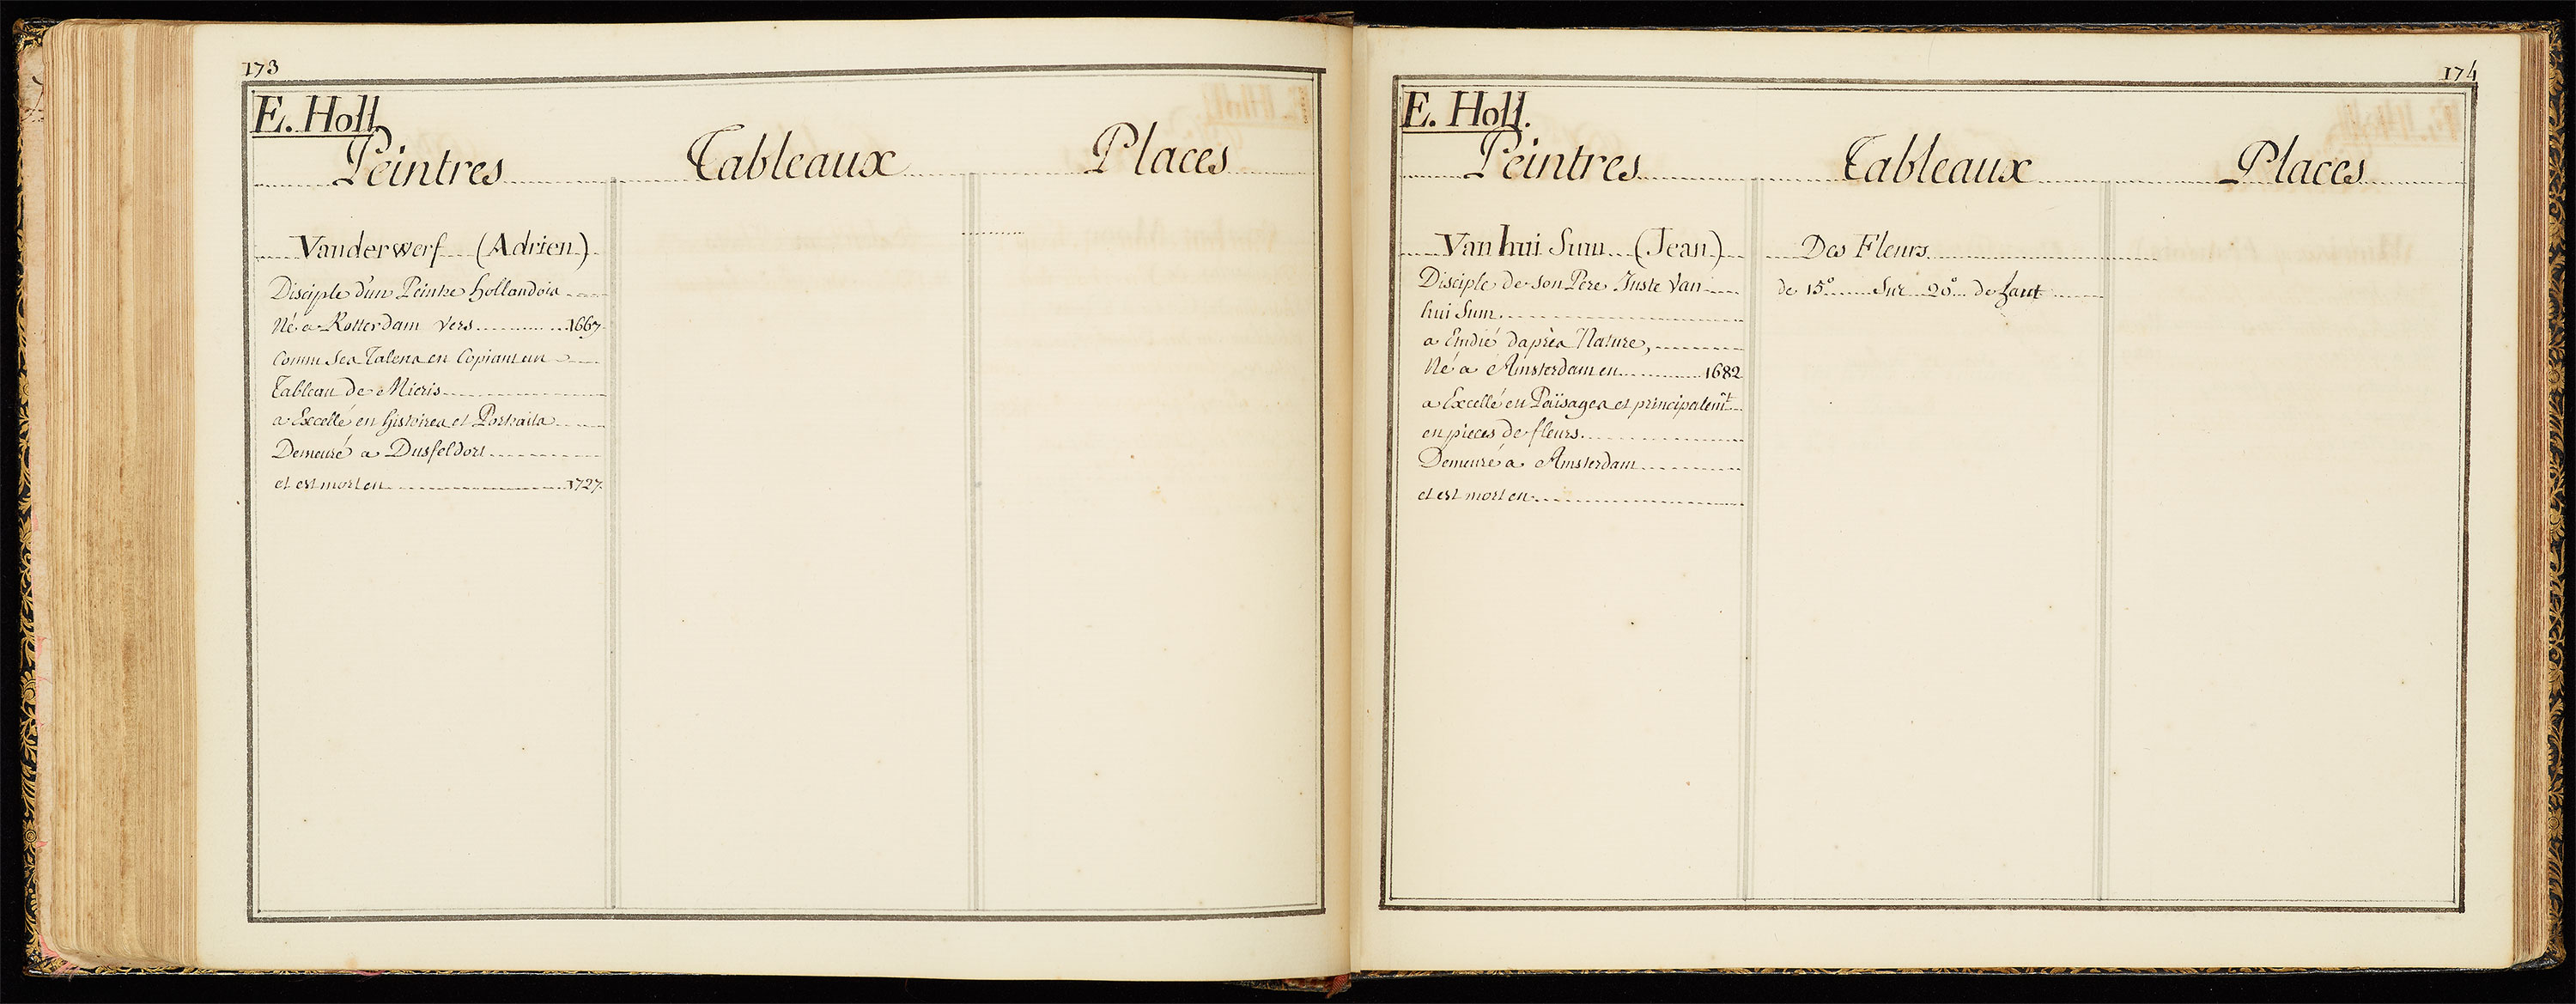 173
E. Holl.
Peintres Tableaux Places
Vanderwerf (Adrien)
Disciple d'un Peintre hollandois
Né a Rotterdam vers 1667
Connu ses Talens en Copiant un
Tableau de Mieris
a Excellé en histoires et Portraits
Demeuré a Dusseldorf
et est mort en 1727
174
E. Holl.
Peintres Tableaux Places
Van hui Sum (Jean)
Disciple de son Pere Juste Van
hui Sum.
a Etudié d'après Nature,
Né a Amsterdam en 1682
a Excellé en Païsages et principalemt.
en pieces de fleurs.
Demeuré a Amsterdam
et est mort en
Des Fleurs
de 15° Sur 20° de haut